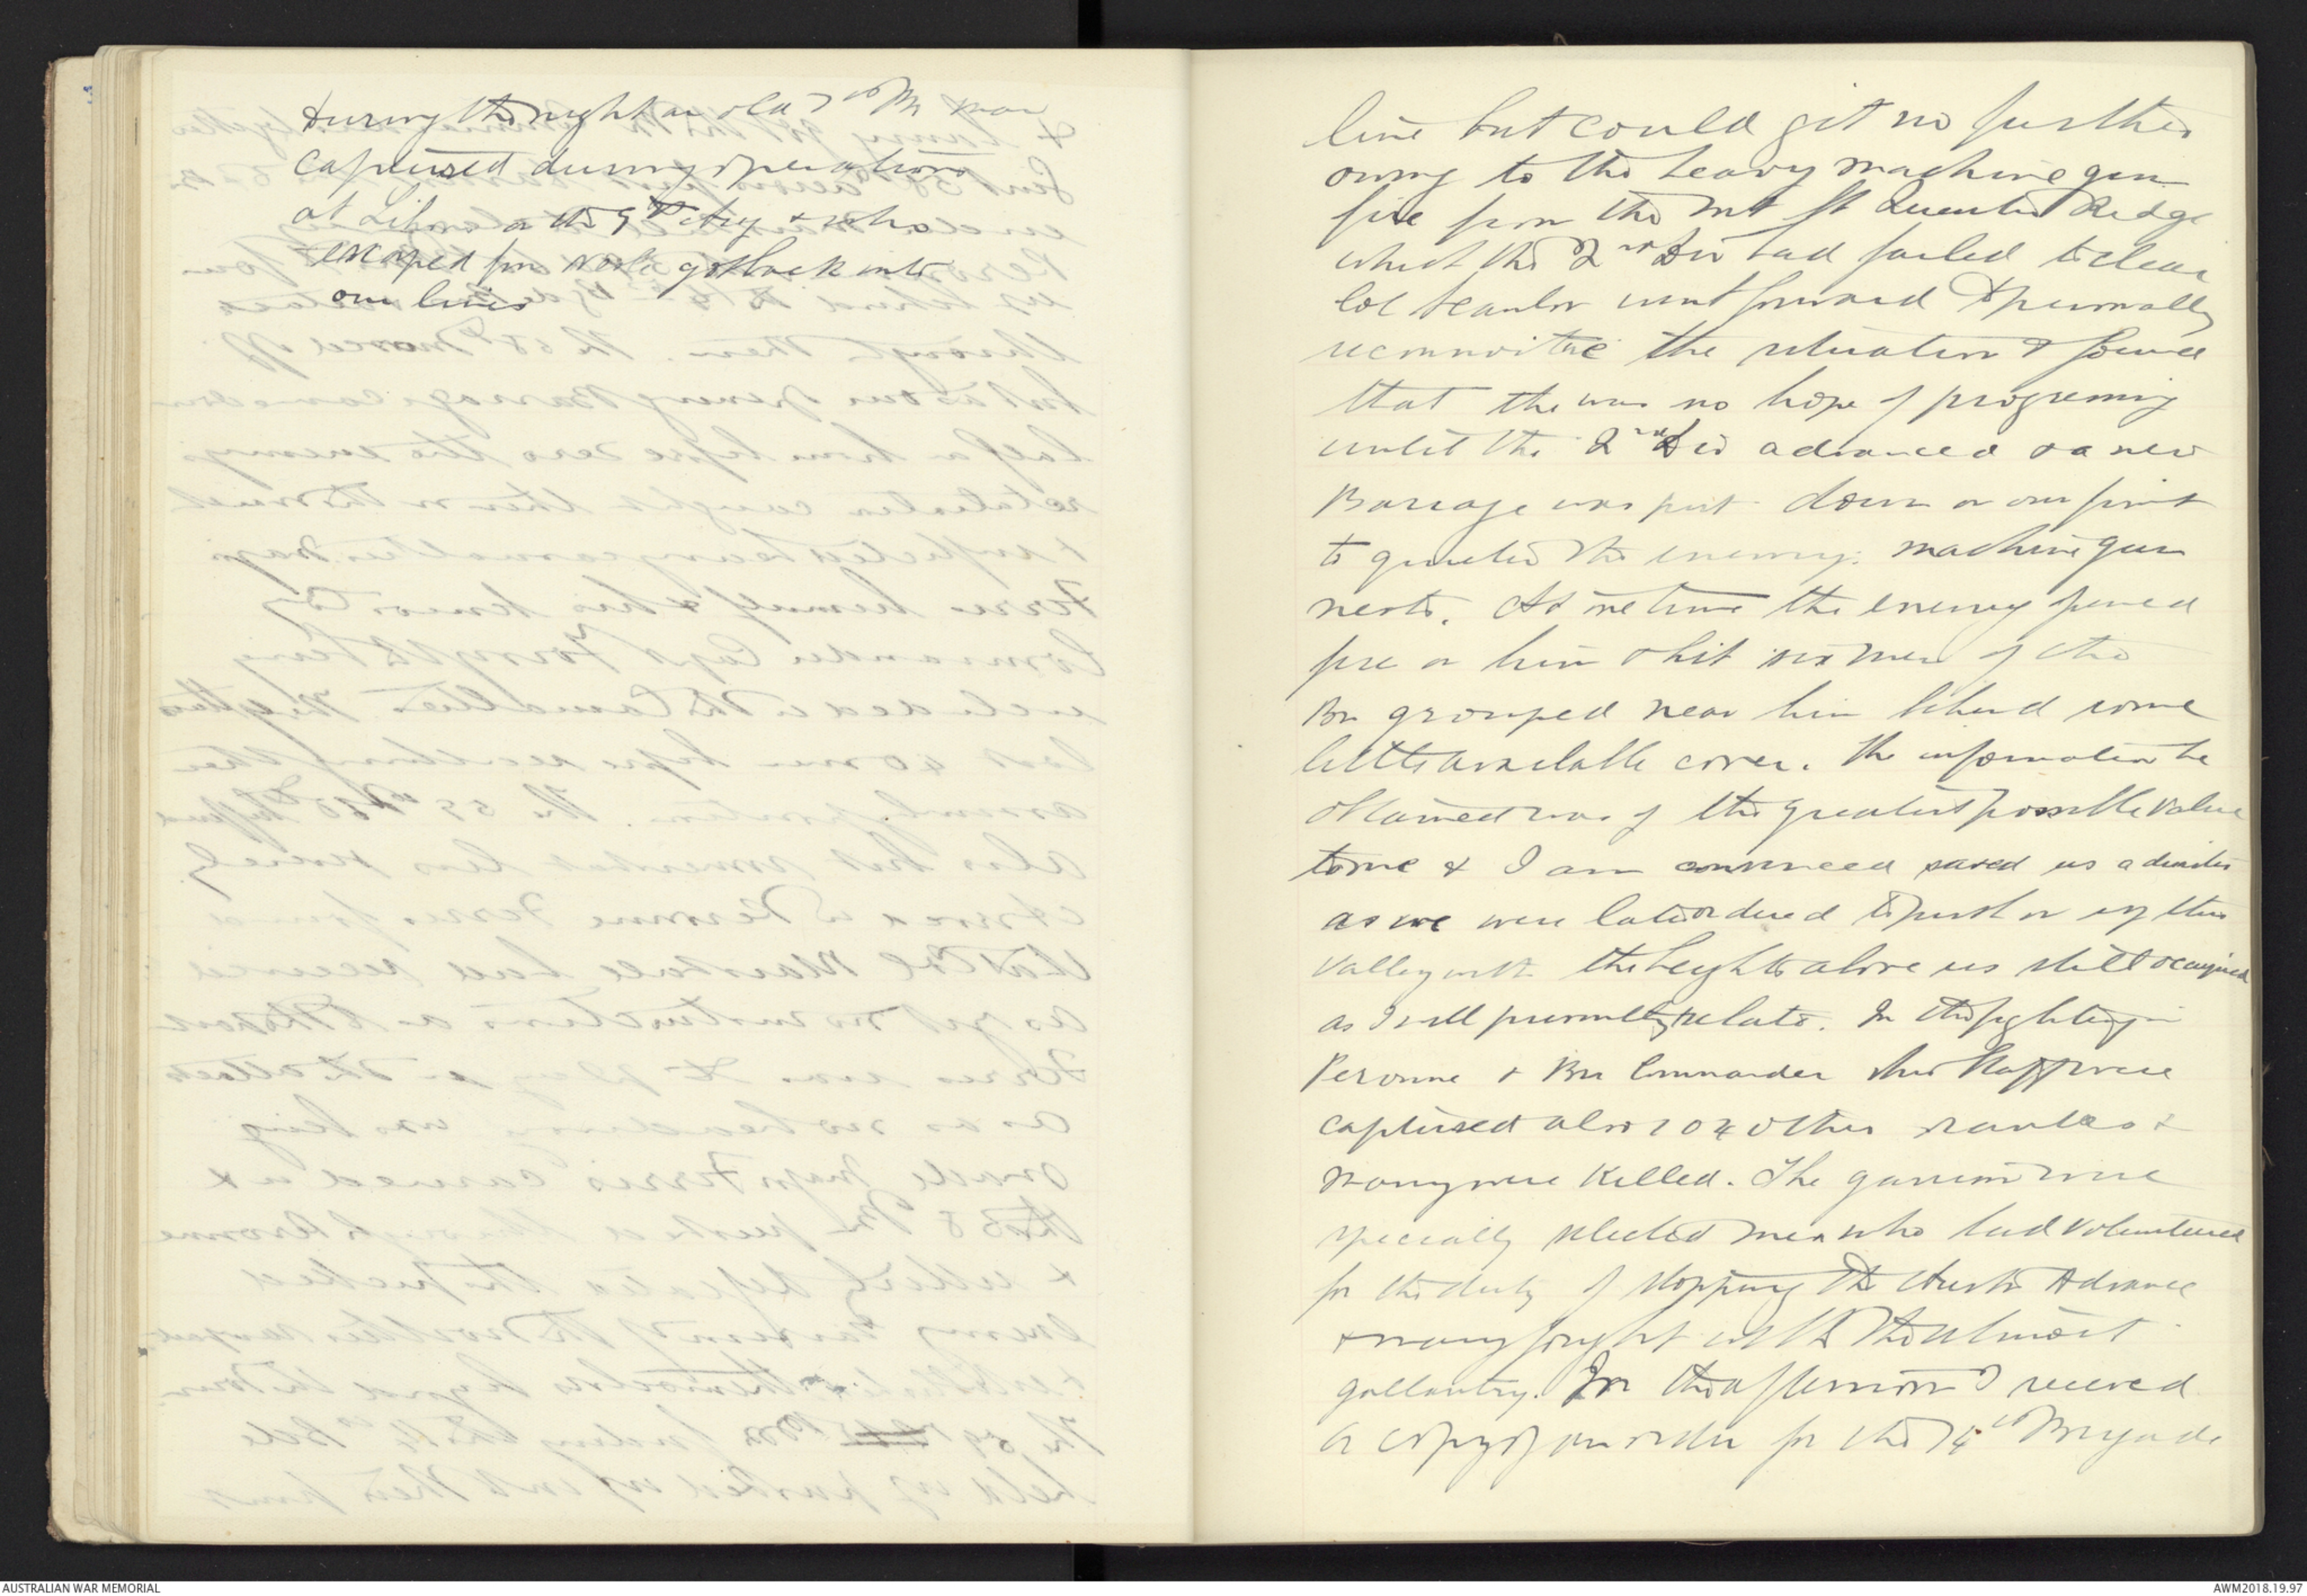 During the night an old 7th Bn man
captured during operations
at Lihons on the 9th Aug & who
escaped from work got back into
our lines
line but could get no further
owing to the heavy machine gun
fire from the Mt St Quentin Ridge
which the 2nd Div had failed to clear
Col Scanlon went forward & personally
reconnoitre the situation & found
that the was no hope of progressing
until the 2nd Div advanced or a new
Barrage was put down on our front
to quieten the enemy: machine gun
nests. At one time the enemy
fire on him & hit six men of the
Bn grouped near him behind some
little available cover. The information he
obtained was of the greatest possible value
to me & I am convinced saved us a disaster
as we were later ordered to push on up this
valley with the heights above us still occupied
as I will presently relate. In the fighting in
Peronne & Bn Commander & his staff were
captured also 204 other ranks &
many were killed. The garrison were
specially selected men who had volunteered
for the duty of stopping the Austn Advance
& many fought with the utmost
gallantry. In the afternoon I received
a copy of an order for the 14th Brigade
AUSTRALIAN WAR MEMORIAL
AWM2018.19.97